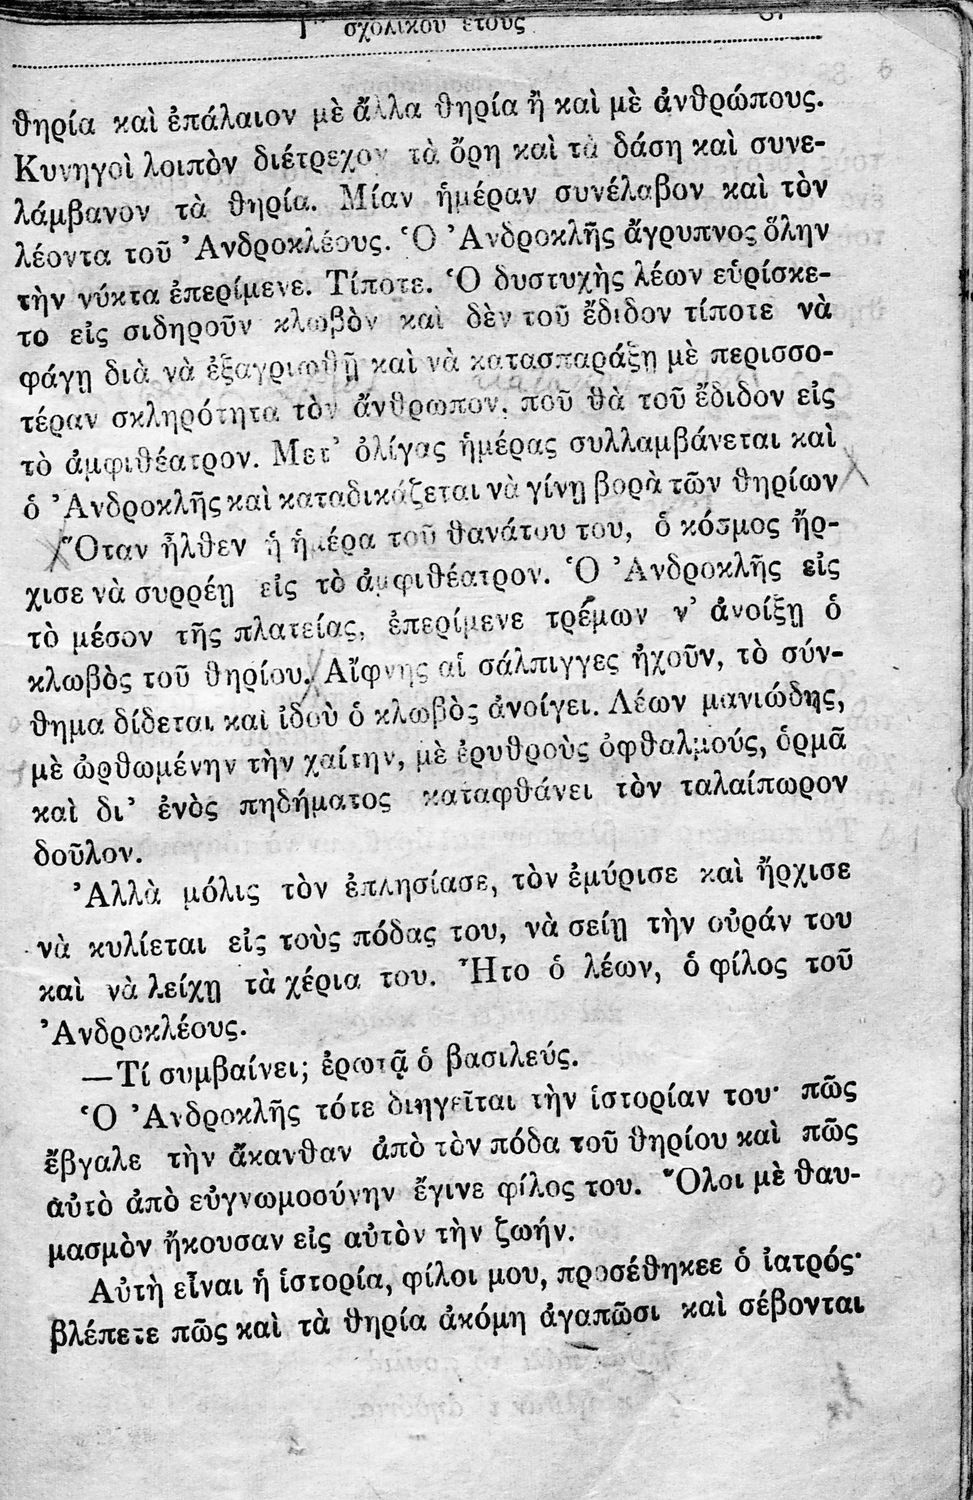 σχολικοῦ ἔτους
θηρία καὶ ἐπάλαιον μὲ ἄλλα θηρία ἢ καὶ μὲ ἀνθρώπους.
Κυνηγοὶ λοιπὸν διέτρεχον τὰ ὄρη καὶ τὰ δάση καὶ συνε-
λάμβανον τὰ θηρία. Μίαν ἡμέραν συνέλαβον καὶ τὸν
λέοντα τοῦ Ἀνδροκλέους. Ὁ Ἀνδροκλῆς ἄγρυπνος ὅλην
τὴν νύκτα ἐπερίμενε. Τίποτε. Ὁ δυστυχὴς λέων εὑρίσκε-
το εἰς σιδηροῦν κλωβὸν καὶ δὲν τοῦ ἔδιδον τίποτε νὰ
φάγῃ διὰ νὰ ἐξαγριωθῇ καὶ νὰ κατασπαράξῃ μὲ περισσο-
τέραν σκληρότητα τὸν ἄνθρωπον, ποῦ θὰ τοῦ ἔδιδον εἰς
τὸ ἀμφιθέατρον. Μετ’ ὀλίγας ἡμέρας συλλαμβάνεται καὶ
ὁ Ἀνδροκλῆς καὶ καταδικάζεται νὰ γίνῃ βορὰ τῶν θηρίων
Ὅταν ἦλθεν ἡ ἡμέρα τοῦ θανάτου του, ὁ κόσμος ἤρ-
χισε νὰ συρρέῃ εἰς τὸ ἀμφιθέατρον. Ὁ Ἀνδροκλῆς εἰς
τὸ μέσον τῆς πλατείας, ἐπερίμενε τρέμων ν’ ἀνοίξῃ ὁ
κλωβὸς τοῦ θηρίου. Αἴφνης αἱ σάλπιγγες ἠχοῦν, τὸ σύν-
θημα δίδεται καὶ ἰδοὺ ὁ κλωβὸς ἀνοίγει. Λέων μανιώδης,
μὲ ὠρθωμένην τὴν χαίτην, μὲ ἐρυθροὺς ὀφθαλμούς, ὁρμᾶ
καὶ δι’ ἑνὸς πηδήματος καταφθάνει τὸν ταλαίπωρον
δοῦλον.
Ἀλλὰ μόλις τὸν ἐπλησίασε, τὸν ἐμύρισε καὶ ἤρχισε
νὰ κυλίεται εἰς τοὺς πόδας του, νὰ σείῃ τὴν οὐράν του
καὶ νὰ λείχῃ τὰ χέρια του. Ἦτο ὁ λέων, ὁ φίλος τοῦ
Ἀνδροκλέους.
—Τί συμβαίνει; ἐρωτᾷ ὁ βασιλεύς.
Ὁ Ἀνδροκλῆς τότε διηγεῖται τὴν ἱστορίαν του· πῶς
ἔβγαλε τὴν ἄκανθαν ἀπὸ τὸν πόδα τοῦ θηρίου καὶ πῶς
αὐτὸ ἀπὸ εὐγνωμοσύνην ἔγινε φίλος του. Ὅλοι μὲ θαυ-
μασμὸν ἤκουσαν εἰς αὐτὸν τὴν ζωήν.
Αὐτὴ εἶναι ἡ ἱστορία, φίλοι μου, προσέθηκεε ὁ ἰατρός·
βλέπετε πῶς καὶ τὰ θηρία ἀκόμη ἀγαπῶσι καὶ σέβονται